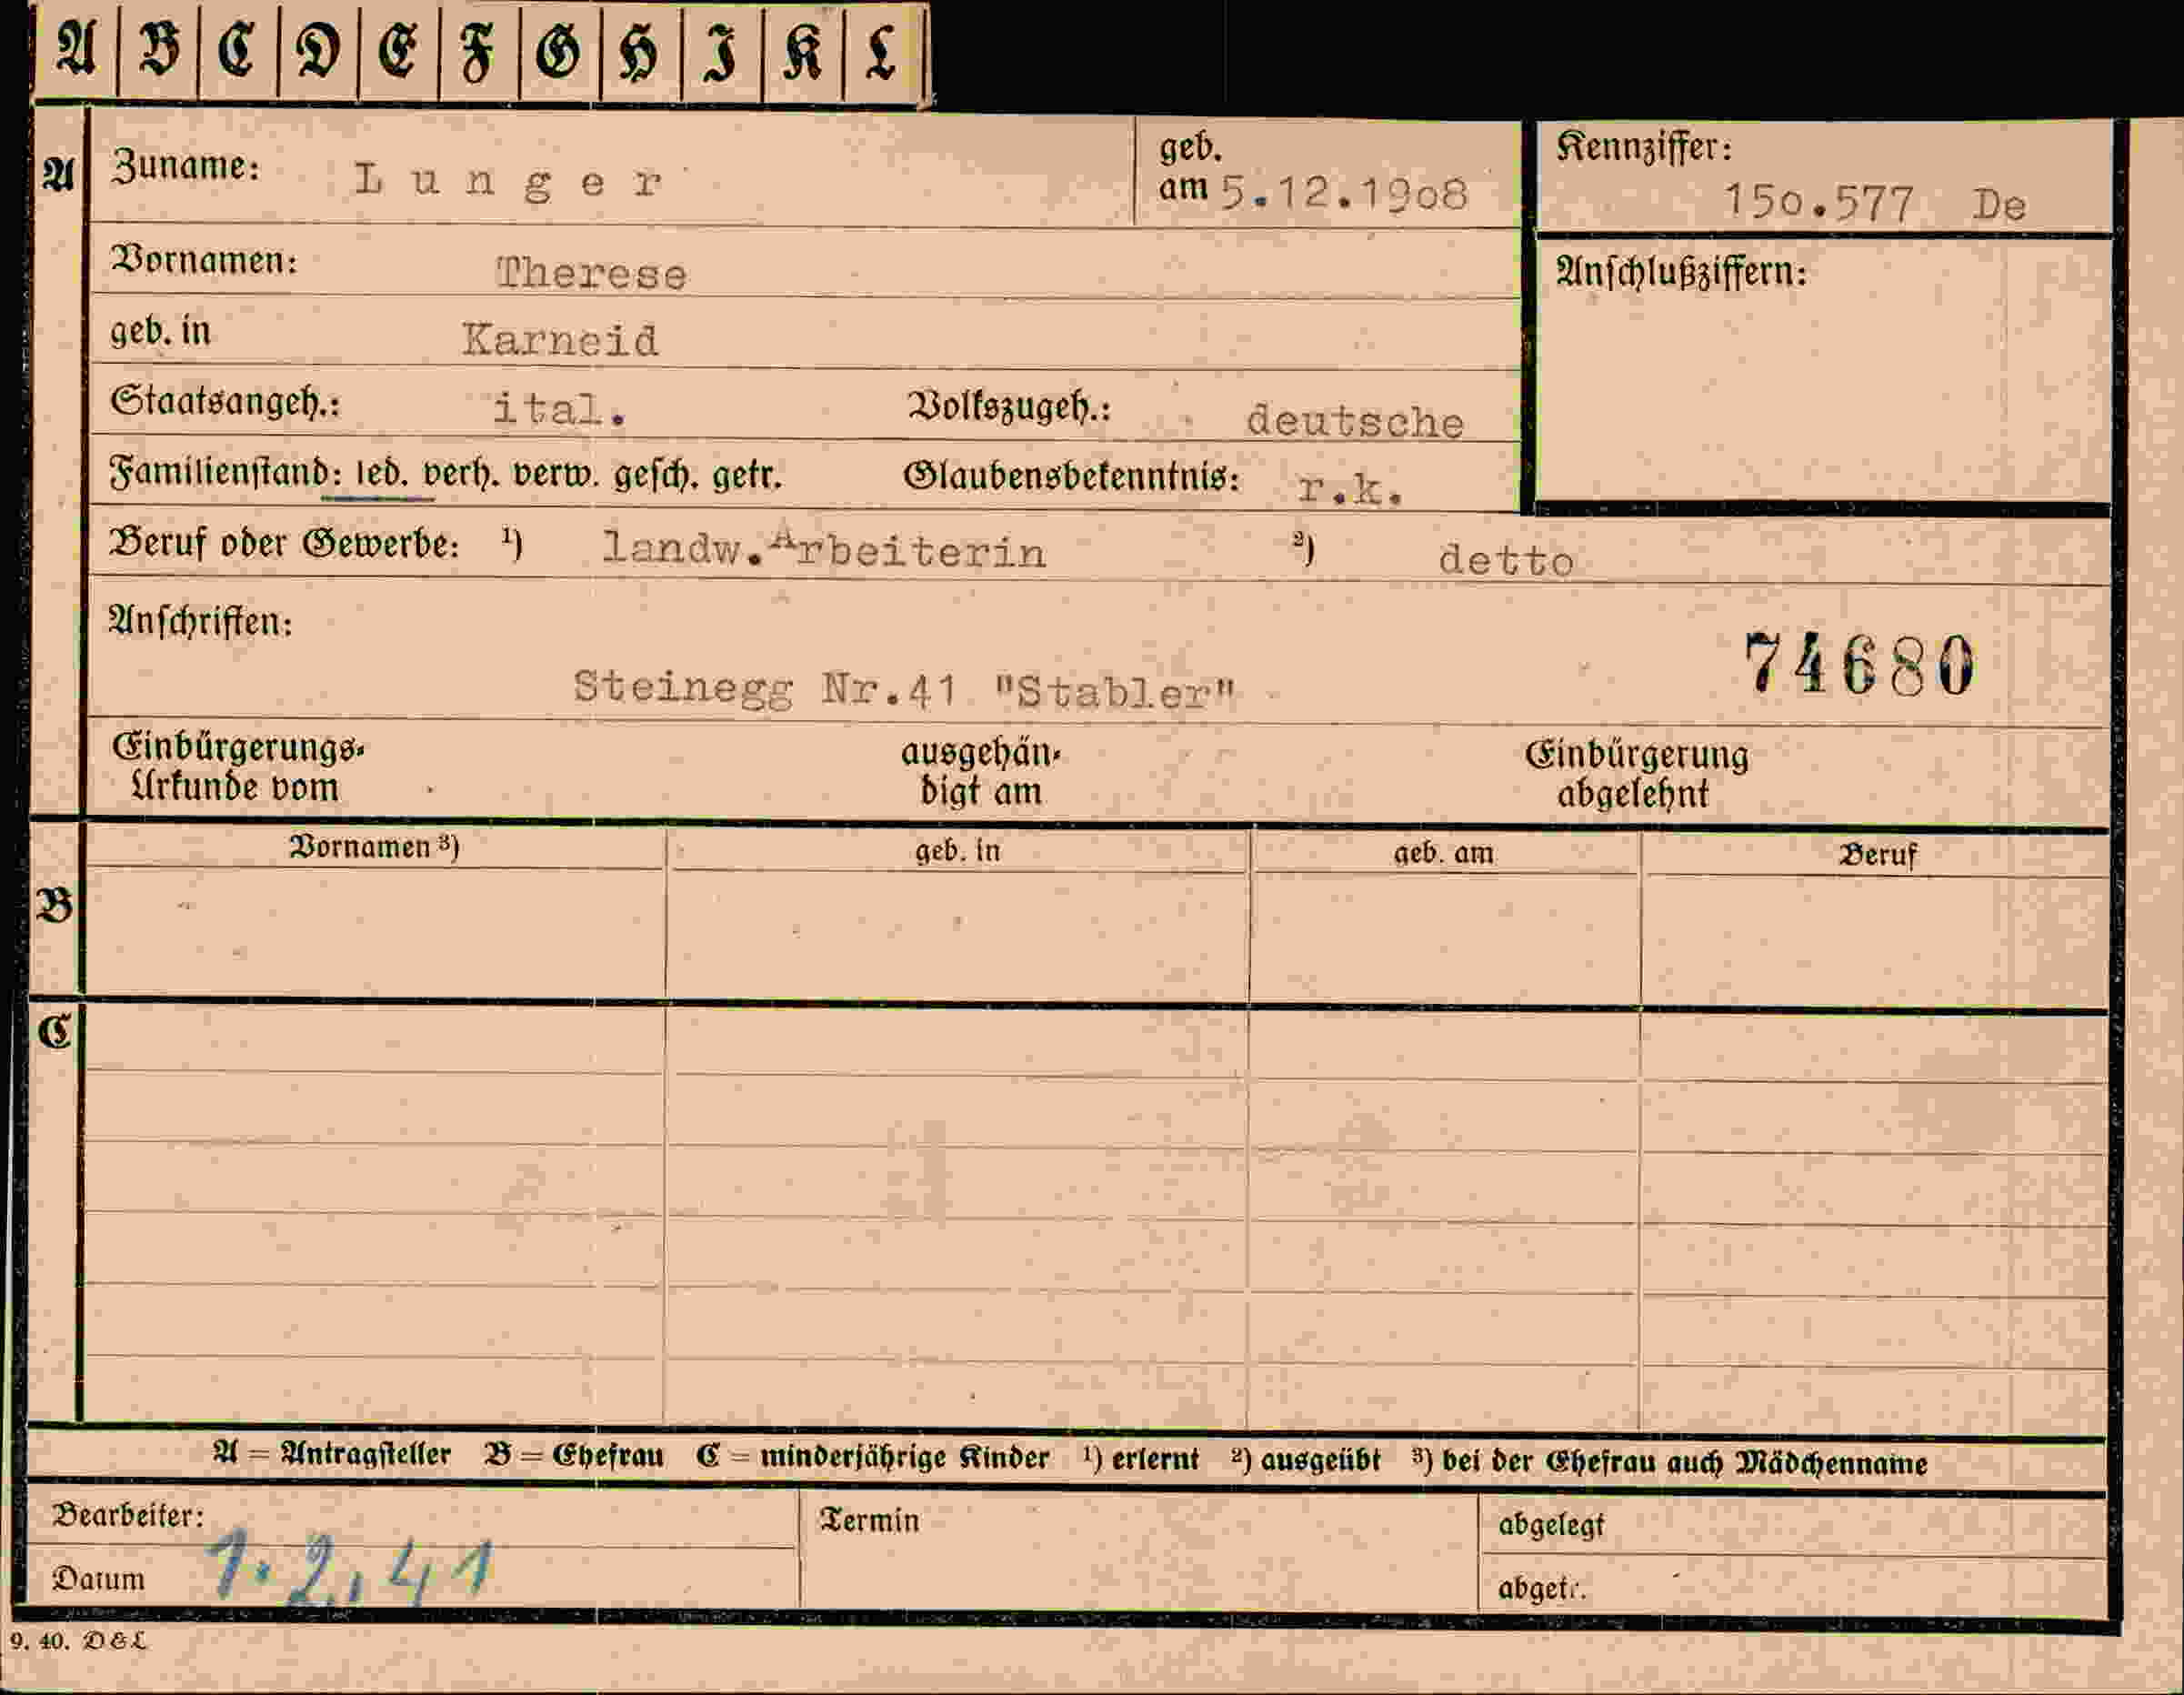 A B C D E F G H I K L
A
Zuname: Lunger
geb. am 5.12.19o8
Kennziffer: 15o.577 De
Vornamen: Therese
Anschlußziffern:
geb. in Karneid
Staatsangeh.: ital. Volkszugeh.: deutsche
Familienstand: led. verh. verw. gesch. getr. Glaubensbekenntnis: r.k.
Beruf oder Gewerbe: ¹) landw.Arbeiterin ²) detto
Anschriften:
74680
Steinegg Nr.41 "Stabler"
Einbürgerungs- ausgehän- Einbürgerung
Urkunde vom digt am abgelehnt
Vornamen ³) geb. in geb. am Beruf
B
C
A = Antragsteller B = Ehefrau C = minderjährige Kinder ¹) erlernt ²) ausgeübt ³) bei der Ehefrau auch Mädchenname
Bearbeiter: Termin abgelegt
Datum 1.2.41 abgetr.
9. 40. D&L